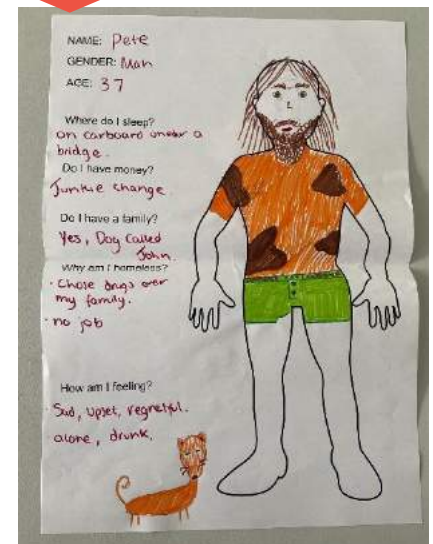 NAME: Pete
GENDER: Man
AGE: 37
Where do I sleep?
on carboard under a
bridge.
Do I have money?
Junkie change.
Do I have a family?
Yes, Dog Called
John.
Why am I homeless?
· Chose drugs over
my family.
· no job
How am I feeling?
· Sad, upset, regretful.
alone, drunk,